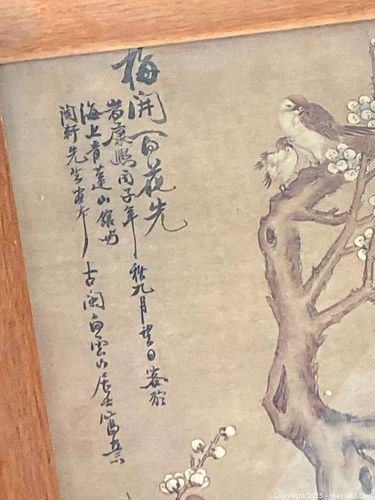 梅開百花先
旹康熙丙子年秋九月望日客於
海上青蓮山館
陶軒先生畫本 古閩白雲山居士寫
Copyright 2025 - maxsold.com